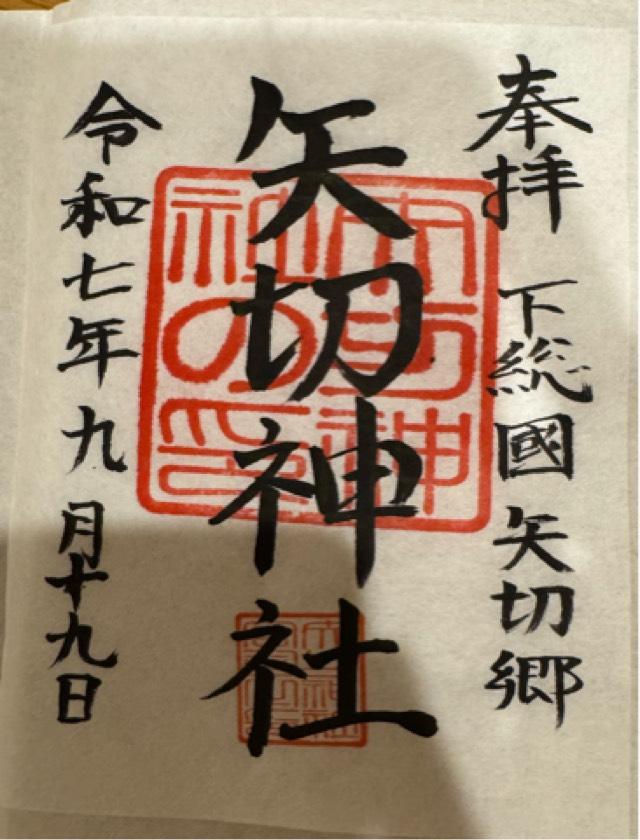 奉拝 下総國矢切郷
矢切神社
令和七年九月十九日